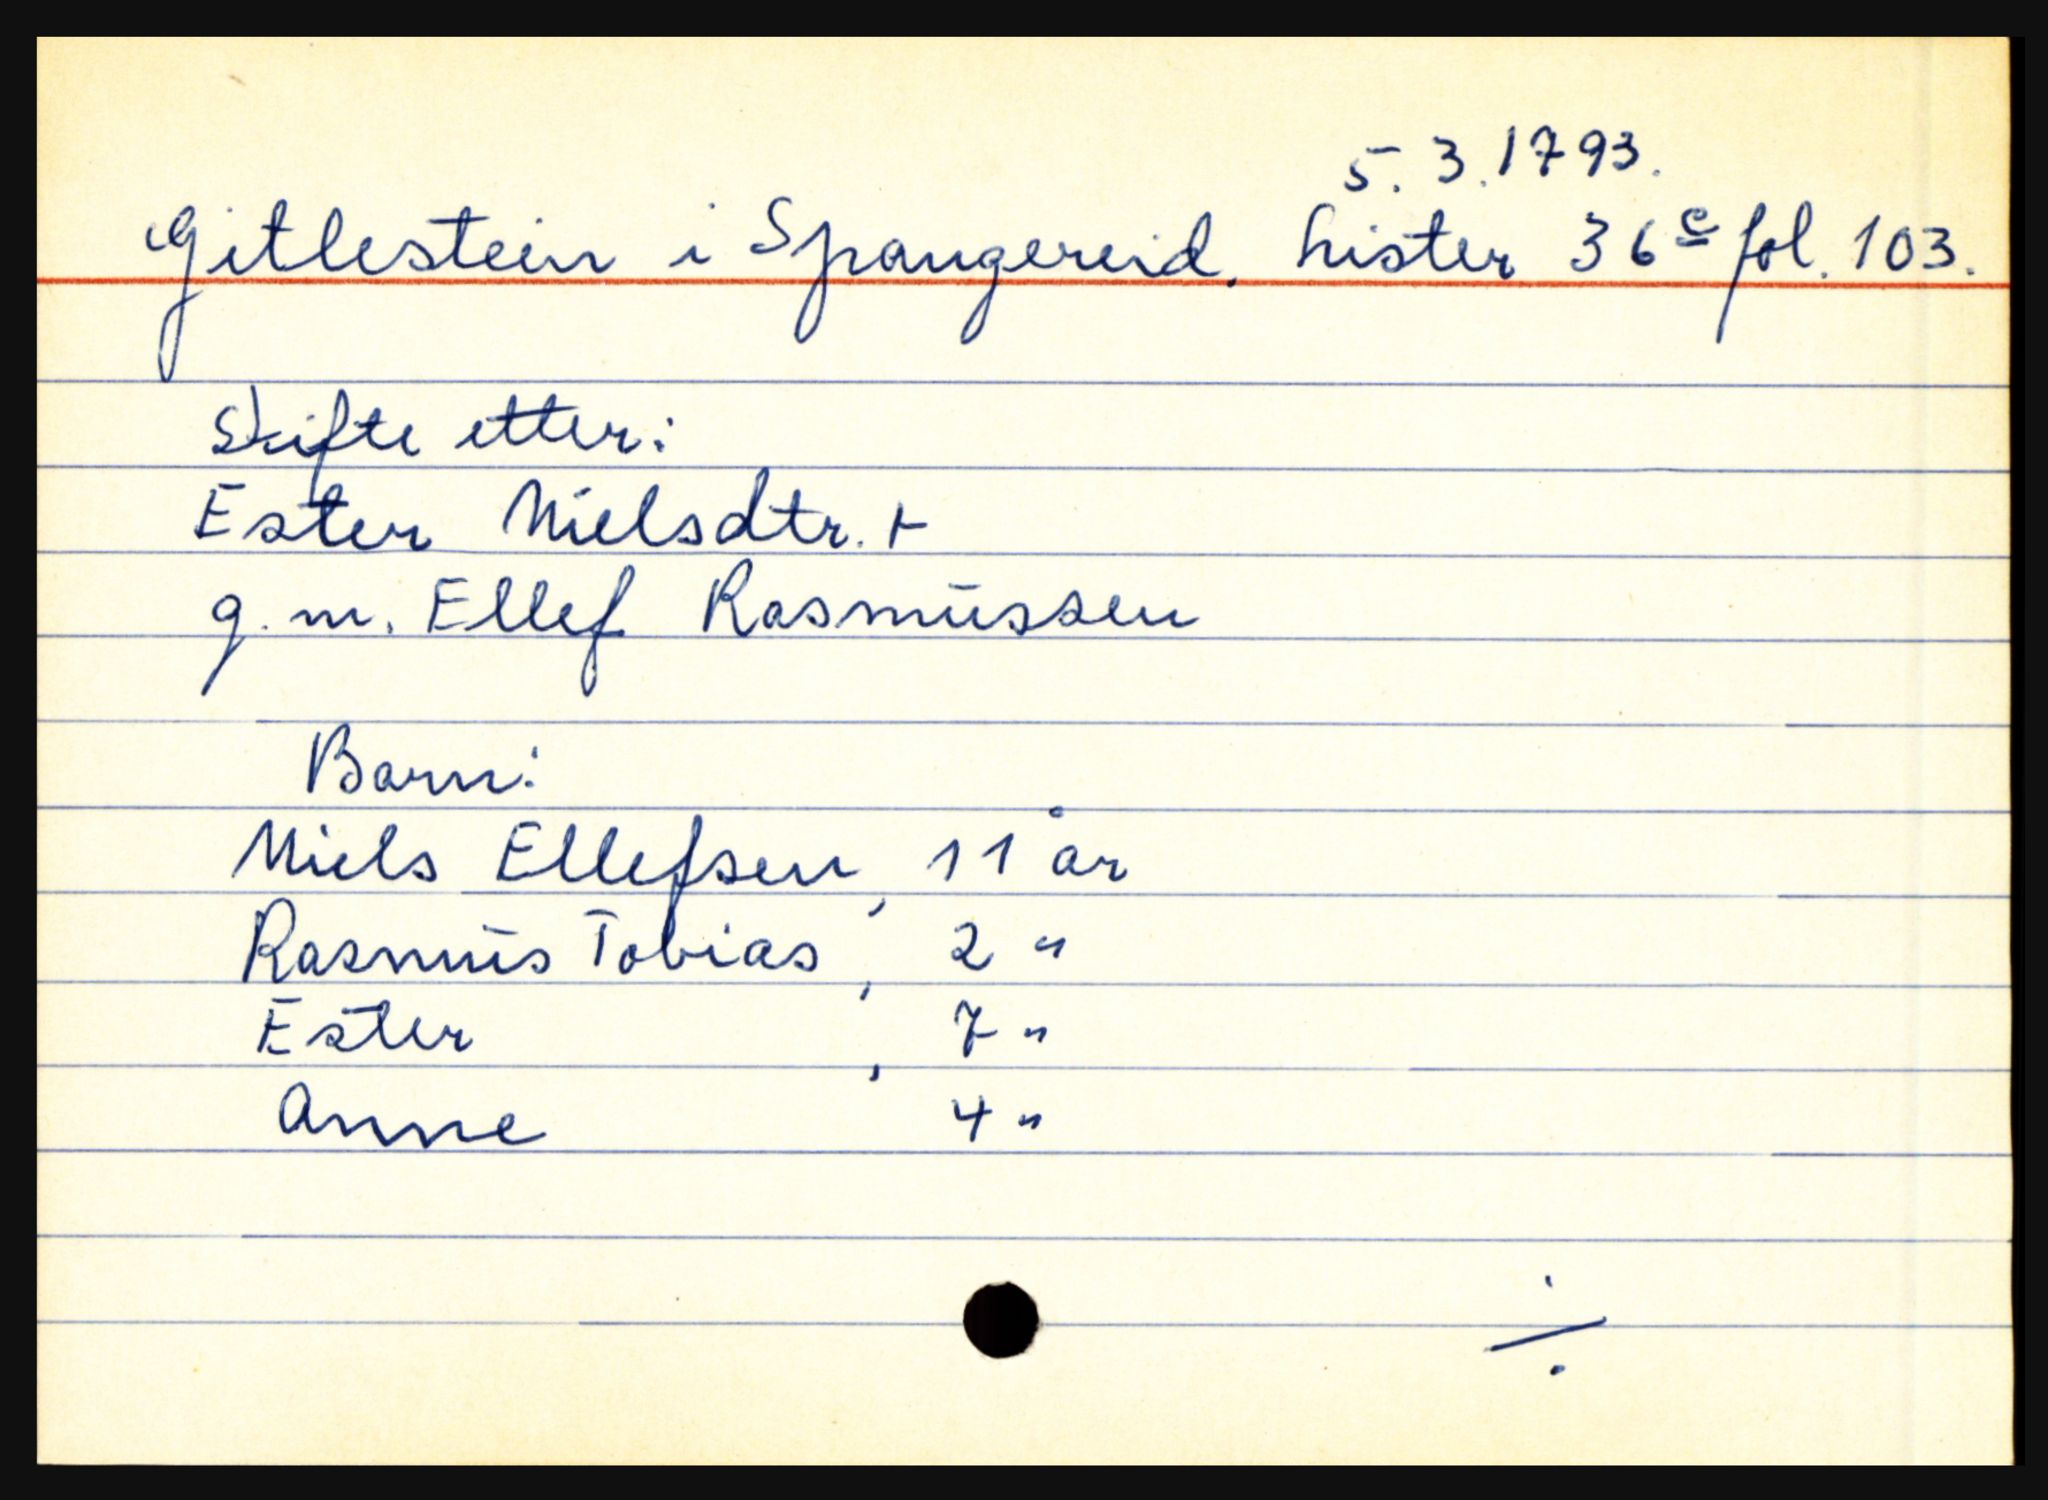 5.3.1793.
Gitlestein i Spangereid. Lister 36c fol. 103.
Skifte etter:
Ester Nielsdtr. +
g.m. Ellef Rasmussen
Barn:
Niels Ellefsen, 11 år
Rasmus Tobias, 2 "
Ester, 7 "
Anne 4 "
÷